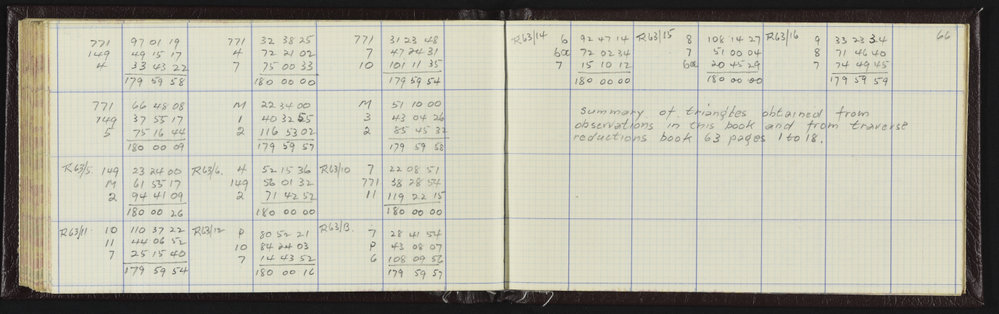 771 97 01 19 771 32 38 25 771 31 23 48
149 49 15 17 4 72 21 02 7 47 24 31
4 33 43 22 7 75 00 33 10 101 11 35
179 59 58 180 00 00 179 59 54
771 66 48 08 M 22 34 00 M 51 10 00
149 37 55 17 1 40 32 55 3 43 04 26
5 75 16 44 2 116 53 02 2 85 45 32
180 00 09 179 59 57 179 59 58
R63/5. 149 23 24 00 R63/6. 4 52 15 36 R63/10 7 22 08 51
M 61 55 17 149 56 01 32 771 38 28 54
2 94 41 09 2 71 42 52 11 119 22 15
180 00 26 180 00 00 180 00 00
R63/11. 10 110 37 22 R63/12 P 80 52 21 R63/13. 7 28 41 54
11 44 06 52 10 84 24 03 P 43 08 07
7 25 15 40 7 14 43 52 6 108 09 56
179 59 54 180 00 16 179 59 57
R63/14 6 92 47 14 R63/15 8 108 14 27 R63/16 9 33 23 34 66
6a 72 02 34 7 51 00 04 8 71 46 40
7 15 10 12 6a 20 45 29 7 74 49 45
180 00 00 180 00 00 179 59 59
Summary of triangles obtained from
observations in this book and from traverse
reductions book 63 pages 1 to 18.